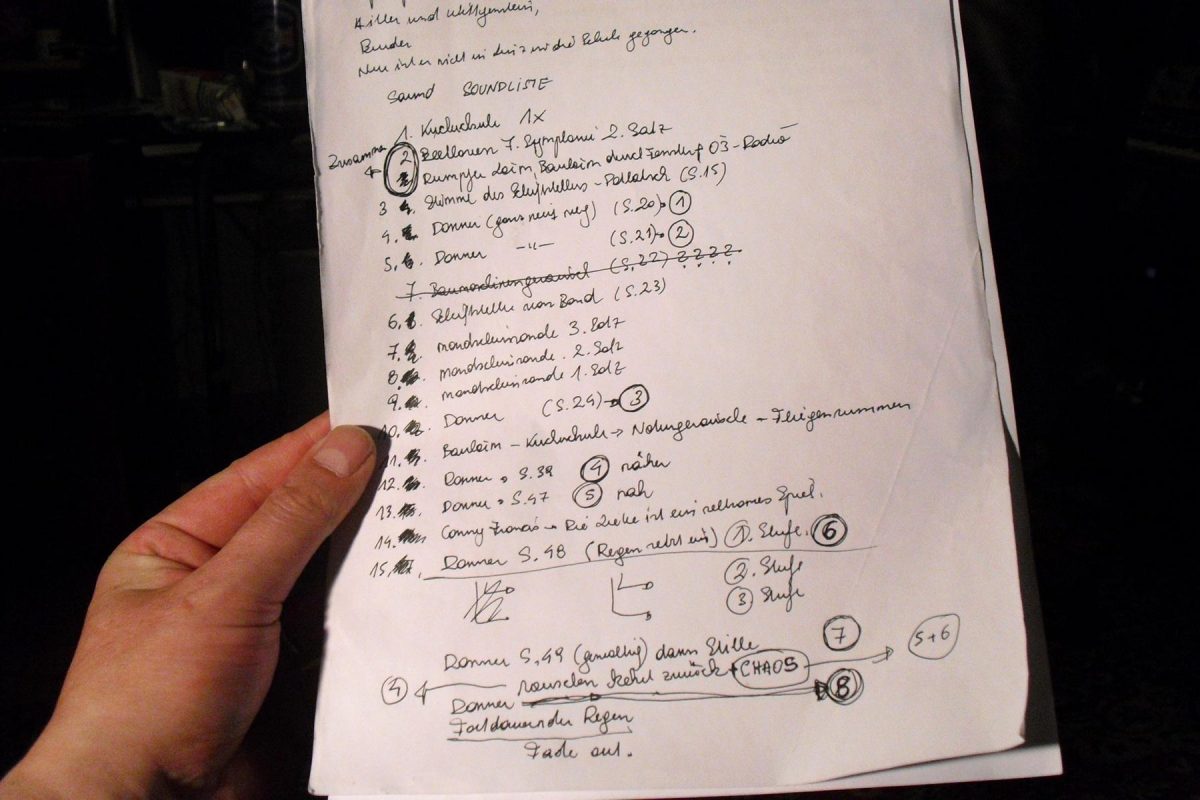 Hitler und Wittgenstein,
Bruder
Nun ist er nicht in Linz in die Schule gegangen.
Sound SOUNDLISTE
1. Kuckucksuhr 1x
Zusammen 2 Beethoven 7. Symphonie 2. Satz
Dumpfer Lärm, Baulärm durch Fenster Ö3-Radio
3 Stimme des Schriftstellers - (S.15)
4. Donner (ganz weit weg) (S.20) 1
5. Donner -"- (S.21) 2
7. Baumaschinengeräusch (S.22) ? ? ? ?
6. Schriftsteller von Band (S.23)
7. Mondscheinsonate 3. Satz
8. Mondscheinsonate. 2. Satz
9. Mondscheinsonate 1. Satz
10. Donner (S.24) 3
11. Baulärm - Kuckucksuhr → Naturgeräusche - Fliegensummen
12. Donner S.39 4 näher
13. Donner S.47 5 nah
14. Conny Francis → Die Liebe ist ein seltsames Spiel.
15. Donner S.48 (Regen setzt ein) 1. Stufe. 6
2. Stufe
3 Stufe
Donner S.49 (gewaltig) dann Stille 7
4 rauschen kehrt zurück + CHAOS 5+6
Donner 8
Fortdauernder Regen
Fade out.